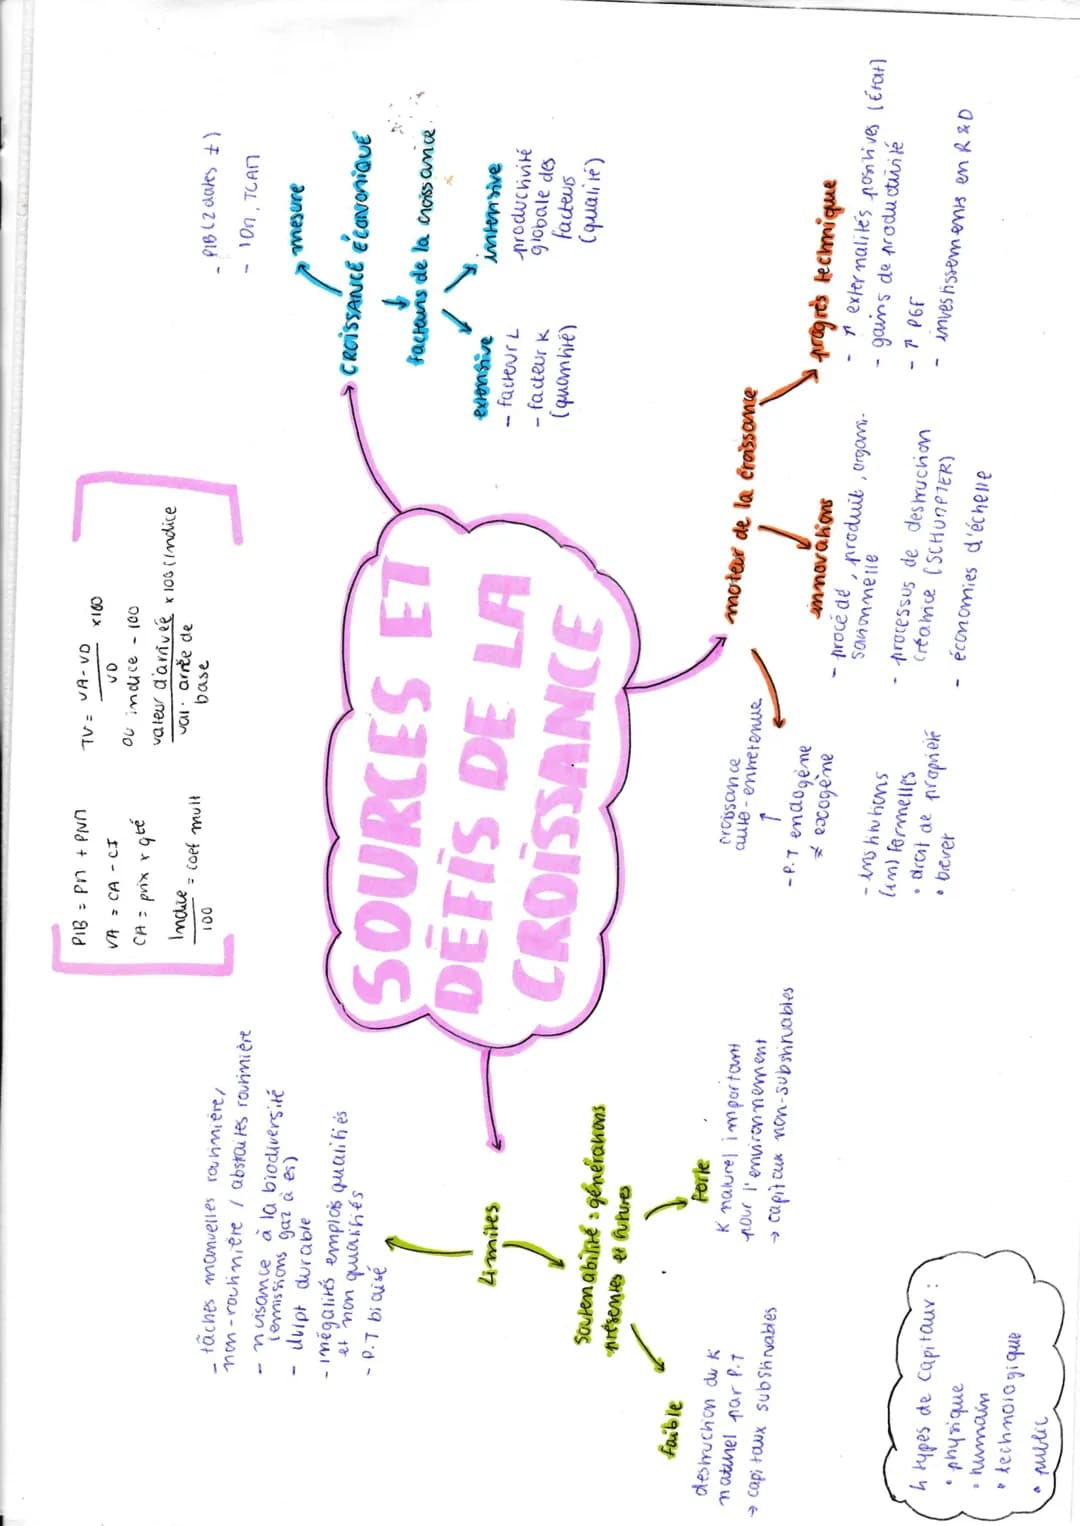 SOURCES ET
DÉFIS DE LA
CROISSANCE
PIB = PN + PNN
VA = CA - CI
CA = prix x qté
Indice = coef mult
100
TV = VA-VD x100
VD
ou indice - 100
valeur d'arrivée x 100 (Indice
val. arrée de
base
CROISSANCE ÉCONOMIQUE
mesure
- PIB (2 dates ≠)
- 10n, TCAM
facteurs de la croissance
extensive
- facteur L
- facteur K
(quantité)
intensive
productivité
globale des
facteurs
(qualité)
moteur de la croissance
progrès technique
- ↗ externalités positives (État)
- gains de productivité
- ↗ PGF
- investissements en R & D
innovations
- procédé, produit, organi-
sationnelle
- processus de destruction
créatrice (SCHUMPTER)
- économies d'échelle
croissance
auto-entretenue
↑
- P.T endogène
≠ exogène
- institutions
(in) formelles
• droit de propriété
• brevet
Limites
- tâches manuelles routinière/
non-routinière / abstraites routinière
- nuisance à la biodiversité
(émissions gaz à es)
- dvlpt durable
- inégalités emplois qualifiés
et non qualifiés
- P.T biaisé
Soutenabilité : générations
présentes et futures
Forte
K naturel important
pour l'environnement
→ capitaux non-substituables
faible
destruction du K
naturel par P.T
→ capitaux substituables
4 types de capitaux :
• physique
• humain
• technologique
• public